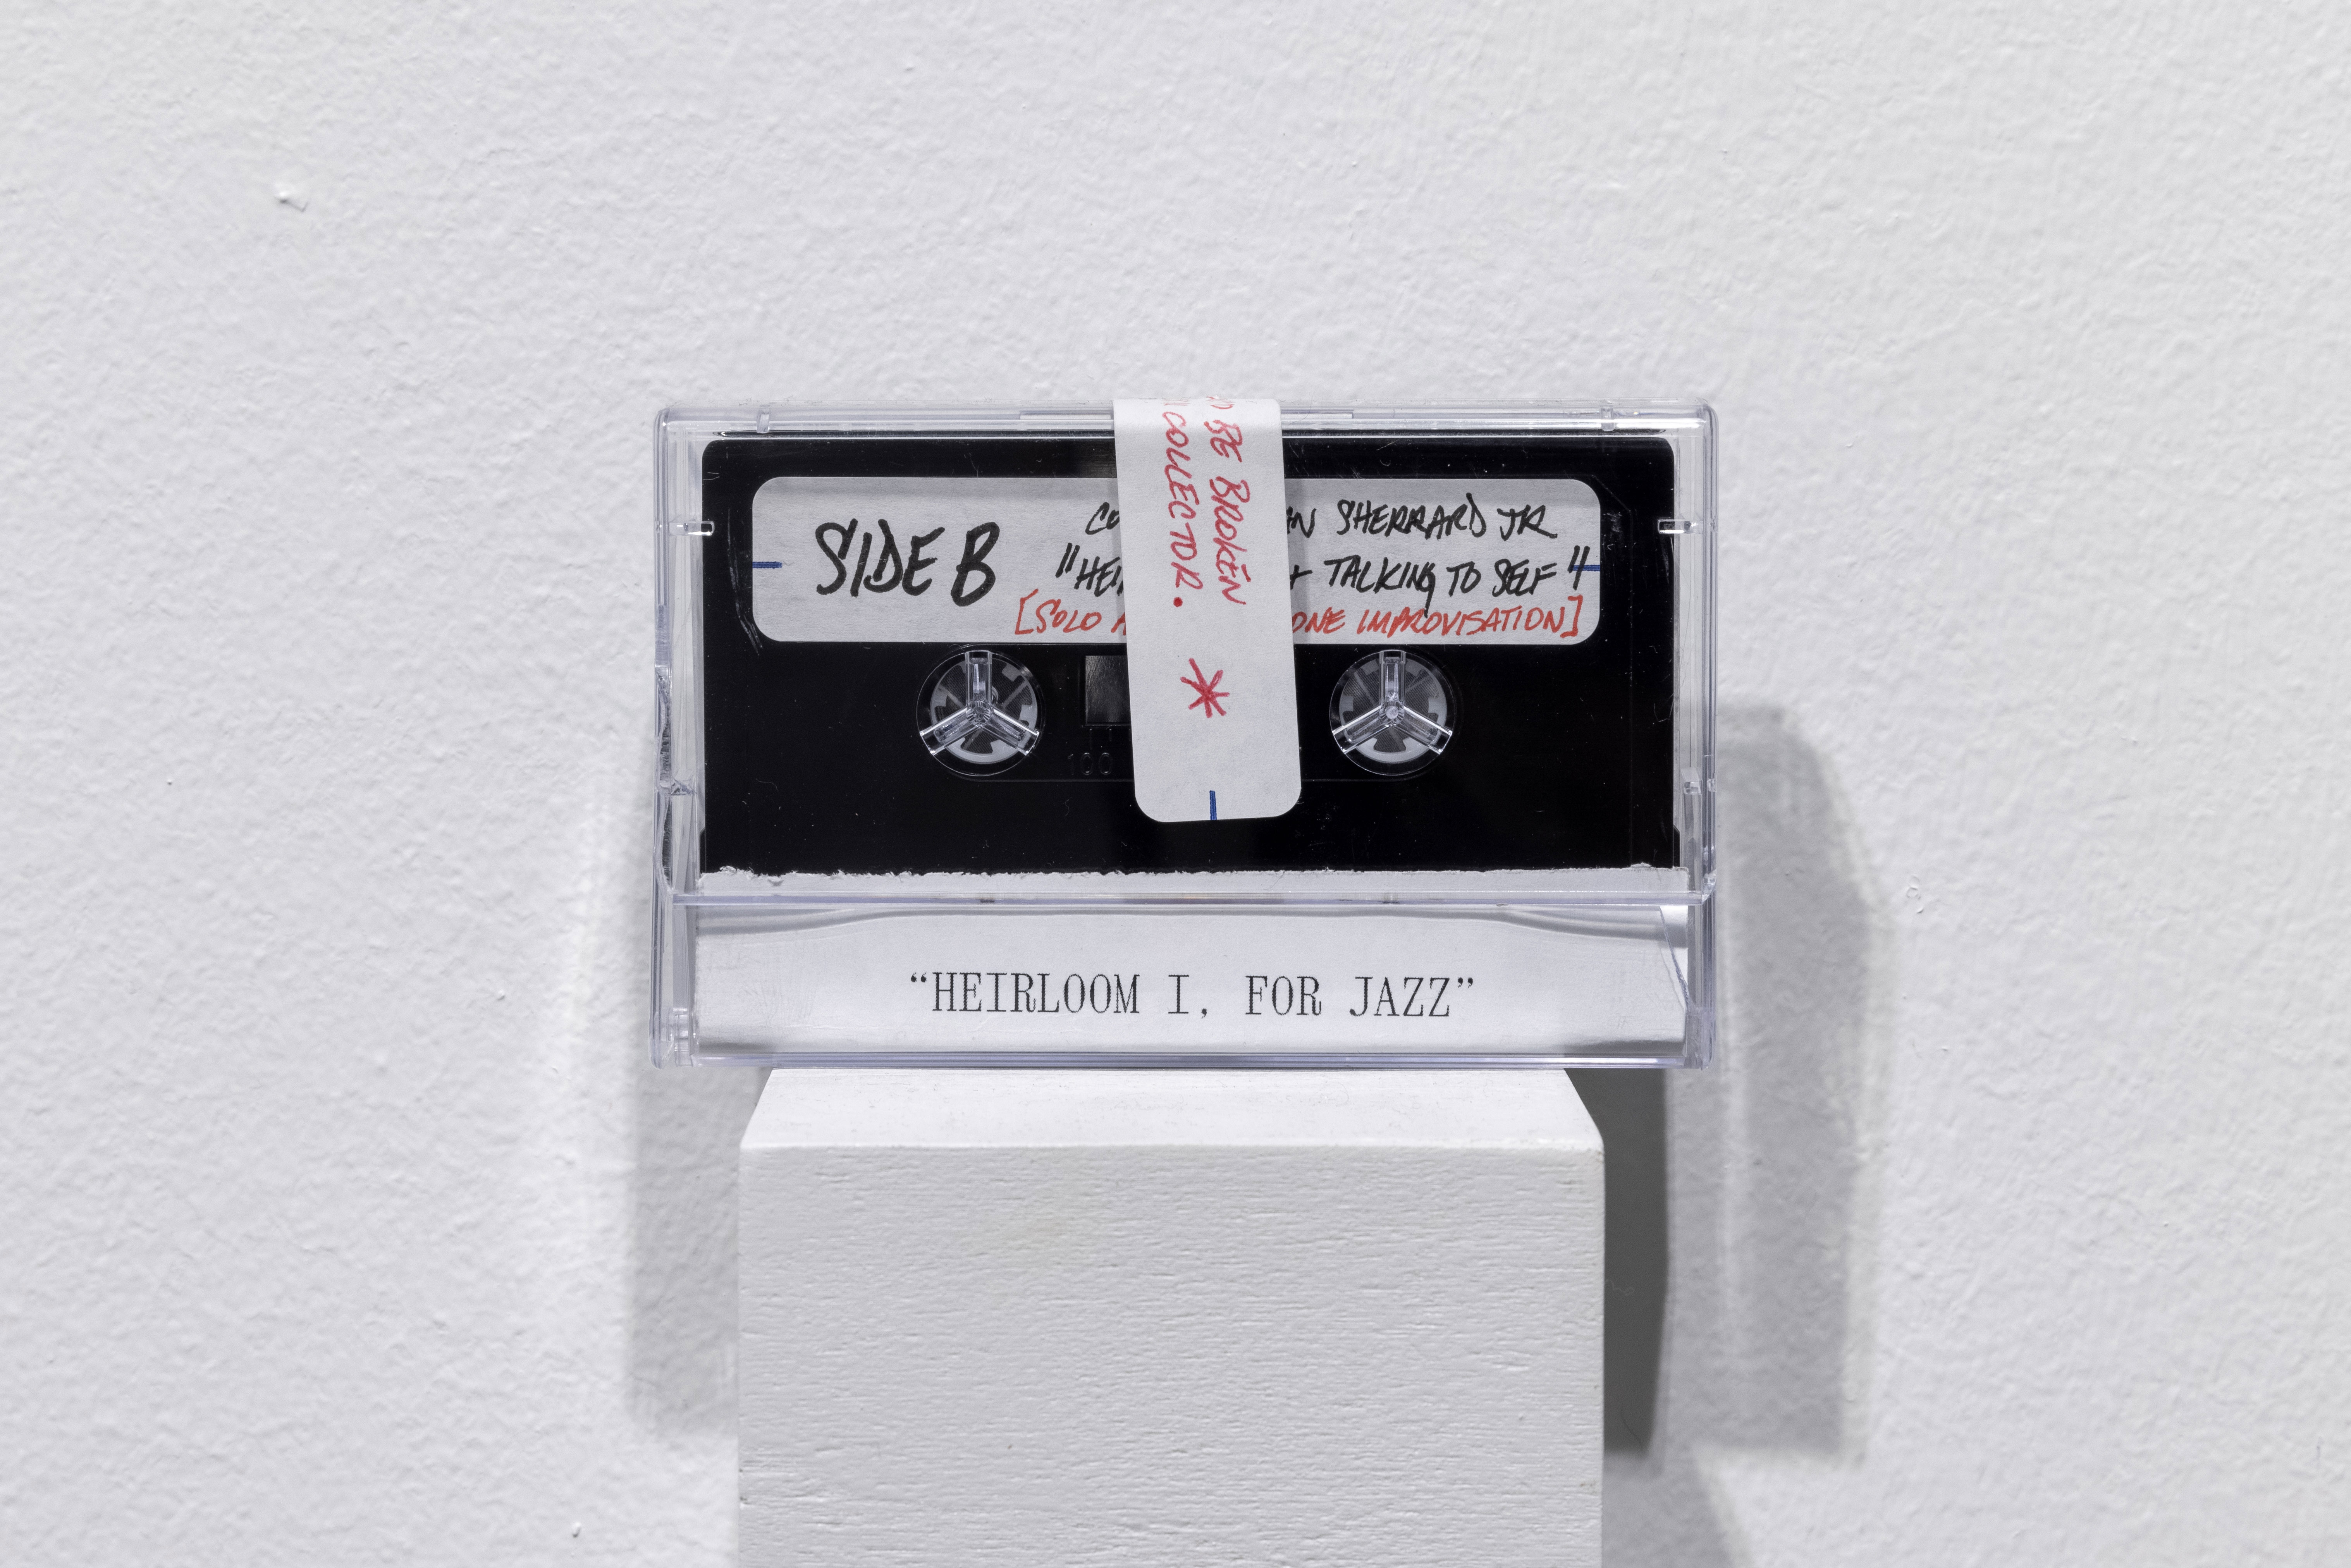 SIDE B
SHERRARD JR
"HEI + TALKING TO SELF"
[SOLO ONE IMPROVISATION]
BE BROKEN
COLLECTOR.
*
100
“HEIRLOOM I, FOR JAZZ”